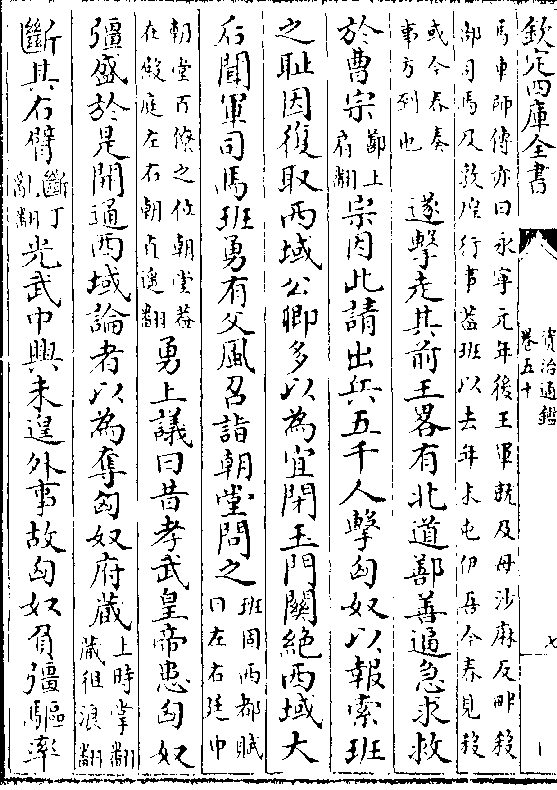 欽定四庫全書
資治通鑑
卷五十
七
馬車師傳亦曰永寧元年後王軍就及母沙麻反畔殺
部司馬及敦煌行事葢班以去年末屯伊吾今春見殺
或今春奏
事方列也
遂擊走其前王畧有北道鄯善逼急求救
於曹宗鄯上扇翻宗因此請出兵五千人擊匈奴以報索班
之恥因復取西域公卿多以為宜閉玉門關絶西域太
后聞軍司馬班勇有父風召詣朝堂問之班固西都賦曰左右廷中
朝堂百僚之位朝堂葢在殿庭左右朝直遥翻勇上議曰昔孝武皇帝患匈奴
彊盛於是開通西域論者以為奪匈奴府藏上時掌翻藏徂浪翻
斷其右臂斷丁亂翻光武中興未遑外事故匈奴負彊驅率